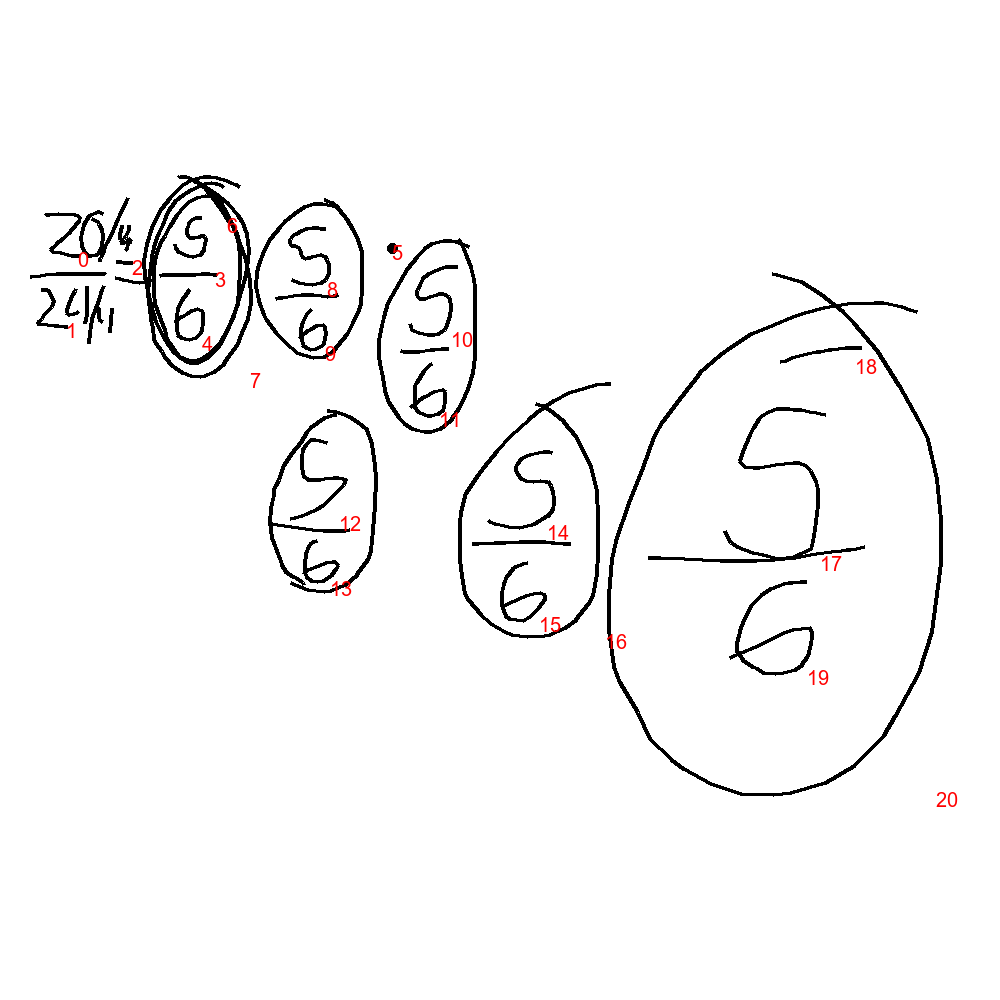 20/4 = 5 5 5
24/4 6 6 6
5 5 5
6 6 6
0 1 2 3 4 5 6 7 8 9 10 11 12 13 14 15 16 17 18 19 20